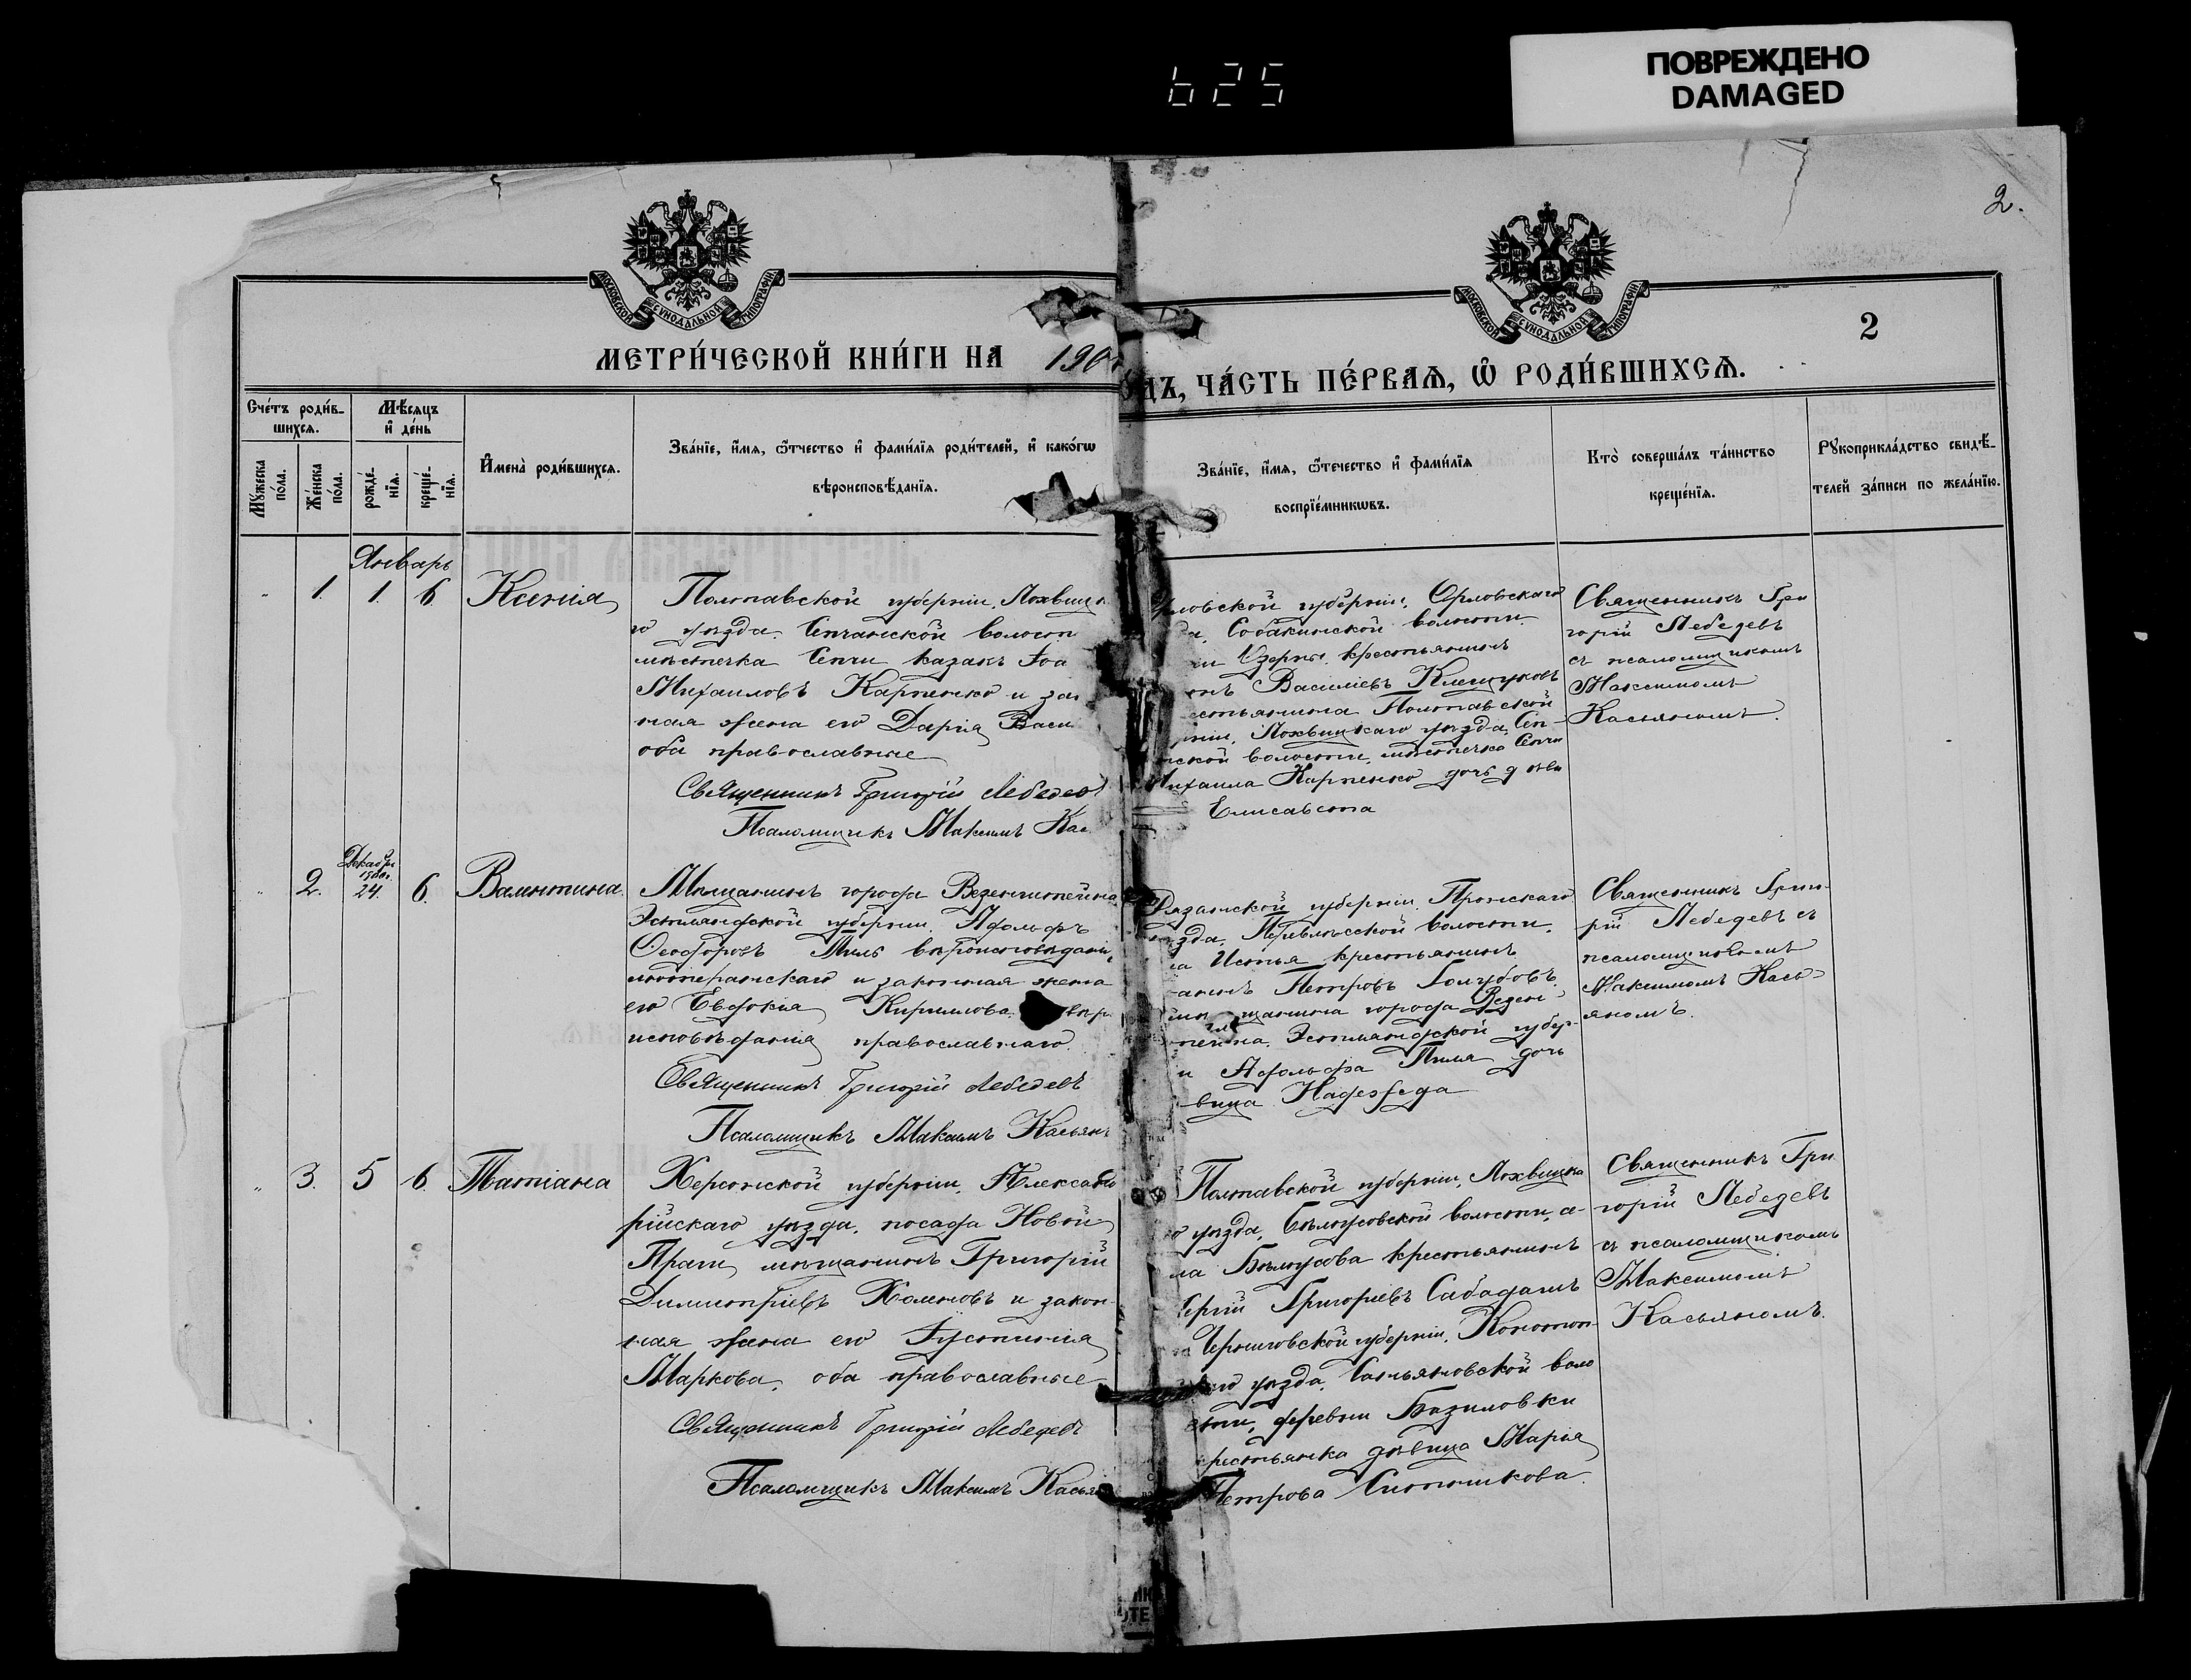 625
ПОВРЕЖДЕНО
DAMAGED
2.
МОСКОВСКОЙ СУНОДАЛЬНОЙ ТИПОГРАФІИ
МОСКОВСКОЙ СУНОДАЛЬНОЙ ТИПОГРАФІИ
2
МЕТРИ́ЧЕСКОЙ КНИ́ГИ НА 190
ОДЪ, ЧА́СТЬ ПЕ́РВАѦ, Ѡ҆ РОДИ́ВШИХСѦ.
Сче́тъ роди́в-
шихсѧ.
Мѣ́сѧцъ
и҆ де́нь
Мꙋ́жеска
по́ла.
Же́нска
по́ла.
рожде́-
нїѧ.
креще́-
нїѧ.
И҆мена̀ роди́вшихсѧ.
Зва́нїе, и҆́мѧ, ѻ҆́тчество и҆ фами́лїѧ роди́телей, и҆ како́гѡ
вѣроисповѣ́данїѧ.
Зва́нїе, и҆́мѧ, ѻ҆́течество и҆ фами́лїѧ
воспрїе́мникѡвъ.
Кто̀ соверша́лъ та́инство
креще́нїѧ.
Рꙋкоприкла́дство свидѣ́-
телей за́писи по жела́нїю.
Январь
1. 1. 6. Ксенія
Полтавской губерніи, Лохвицк
го уѣзда, Сенчанской волост
мѣстечка Сенчи казакъ Іоа
Михаиловъ Карпенко и зак
ная жена его Дарія Васи
оба православные
Священникъ Григорій Лебедев
Псаломщикъ Максимъ Кас
рловской губерніи, Орловскаго
да, Собакинской волости
ни Озерны, крестьянинъ
Василіевъ Клещуковъ
естьянина Полтавской
рніи, Лохвицкаго уѣзда, Сен-
нской волости, мѣстечка Сенчи
Михаила Карпенко дочь дѣви
Елисавета
Священникъ Гри
горій Лебедевъ
съ псаломщикомъ
Максимомъ
Касьяномъ.
2. Декабря
1900г.
24. 6. Валентина.
Мѣщанинъ города Везенштейна
Эстляндской губерніи, Адольфъ
Ѳеодоровъ Тиль вѣроисповѣданія
лютеранскаго и законная жена
его Евдокія Кириллова, вѣро
исповѣданія православнаго.
Священникъ Григорій Лебедевъ
Псаломщикъ Максимъ Касьян
Рязанской губерніи, Пронскаго
ѣзда, Перевлѣсской волости,
ла Истья крестьянинъ
Петровъ Голубовъ,
мѣщанина города Везен
тейна, Эстляндской губер-
и Адольфа Тиля дочь
вица Надежда
Священникъ Григо-
рій Лебедевъ съ
псаломщикомъ
Максимомъ Кась-
яномъ.
3. 5 6. Татіана
Херсонской губерніи, Александ
рійскаго уѣзда, посада Новой
Праги мѣщанинъ Григорій
Димитріевъ Холеновъ и закон-
ная жена его Іустинія
Маркова, оба православные
Священникъ Григорій Лебедевъ
Псаломщикъ Максимъ Касья
Полтавской губерніи, Лохвицка
го уѣзда, Бѣлоусовской волости, се-
ла Бѣлоусова крестьянинъ
Сергій Григоріевъ Сабадашъ
Черниговской губерніи, Конотоп-
го уѣзда, воло
сти, деревни Базиловки
рестьянка дѣвица Марія
Петрова Ситникова.
Священникъ Гри
горій Лебедевъ
съ псаломщикомъ
Максимомъ
Касьяномъ.